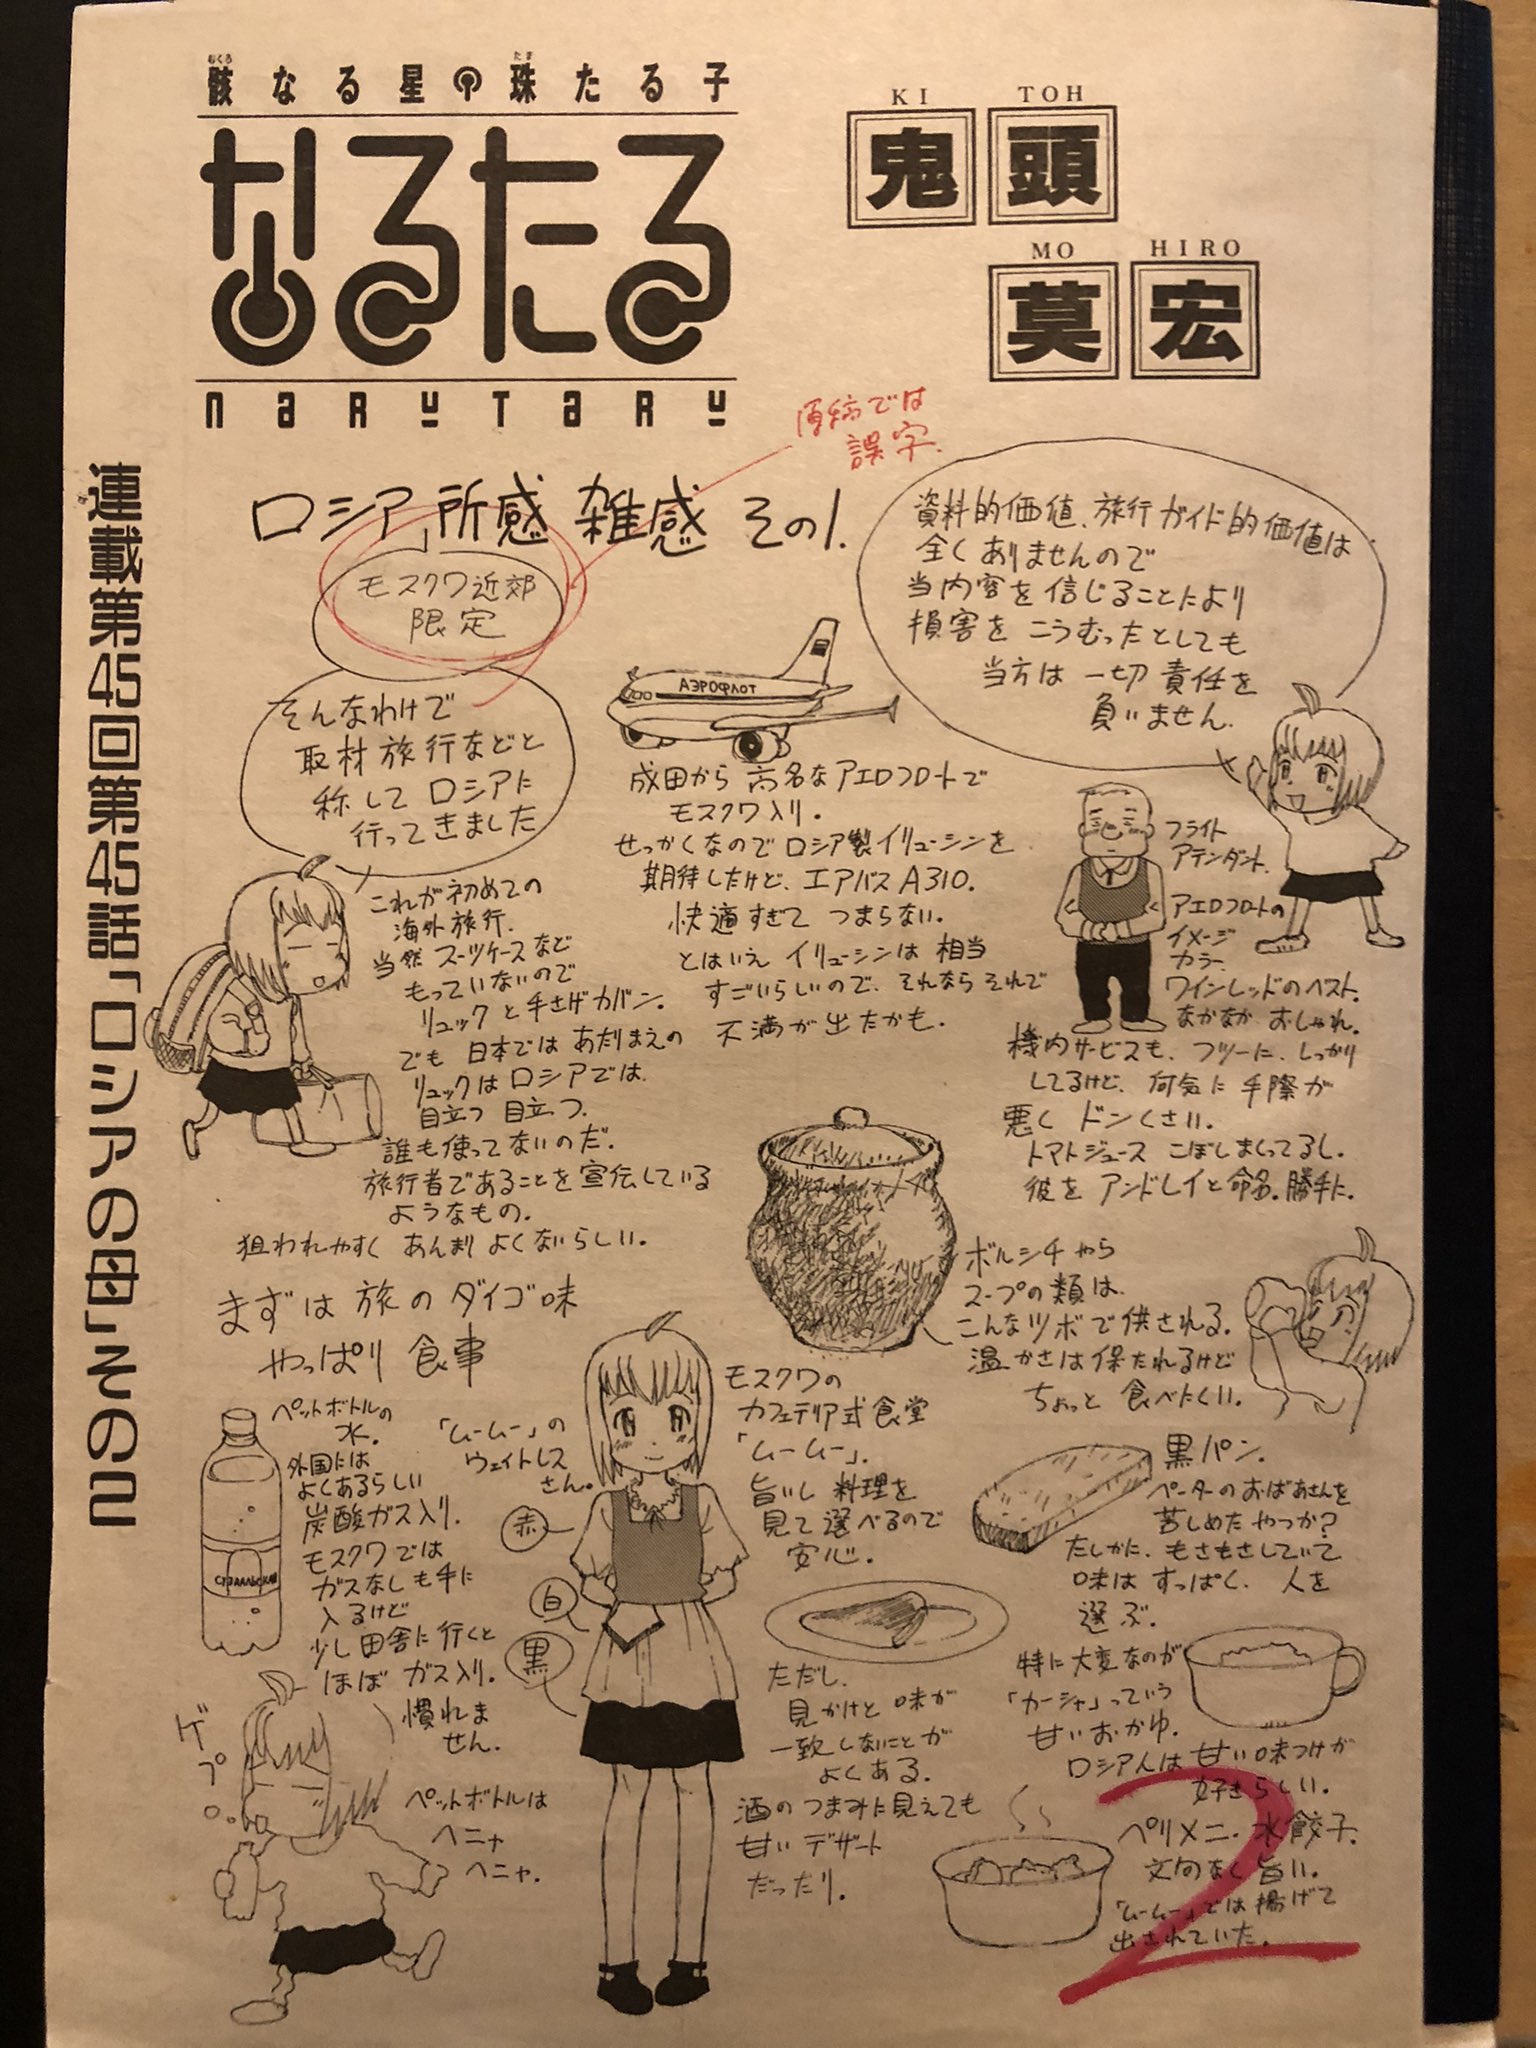 骸なる星の珠たる子
むくろ
たま
なるたる
NARUTARU
KI TOH
鬼頭
MO HIRO
莫宏
連載第45回第45話「ロシアの母」その2
原稿では
誤字.
ロシア所感 雑感 その1.
モスクワ近郊
限定
そんなわけで
取材旅行などと
称して ロシアに
行ってきました
資料的価値、旅行ガイド的価値は
全くありませんので
当内容を信じることにより
損害を こうむったとしても
当方は 一切責任を
負いません.
АЭРОФЛОТ
成田から 高名なアエロフロートで
モスクワ入り.
せっかくなので ロシア製イリューシンを
期待したけど、エアバス A310.
快適すぎて つまらない.
とはいえ イリューシンは 相当
すごいらしいので、それなら それで
不満が出たかも.
フライト
アテンダント.
アエロフロートの
イメージ
カラー.
ワインレッドのベスト.
なかなか おしゃれ.
機内サービスも、フツーに、しっかり
してるけど、何気に 手際が
悪く ドンくさい.
トマトジュース こぼしまくってるし.
彼を アンドレイと命名. 勝手に.
これが初めての
海外旅行.
当然 スーツケースなど
もっていないので
リュックと手さげカバン.
でも 日本では あたりまえの
リュックはロシアでは、
目立つ 目立つ.
誰も使ってないのだ.
旅行者であることを宣伝している
ようなもの.
狙われやすく あんまり よくないらしい.
まずは 旅の ダイゴ味
やっぱり 食事
ボルシチやら
スープの類は、
こんなツボで供される.
温かさは保たれるけど
ちょっと 食べにくい.
ペットボトルの
水.
外国には
よくあるらしい
炭酸ガス入り.
モスクワでは
ガスなしも手に
入るけど
少し田舎に行くと
ほぼ ガス入り.
慣れま
せん.
ゲプ
ペットボトルは
ヘニャ
ヘニャ.
「ムームー」の
ウェイトレス
さん.
赤
白
黒
モスクワの
カフェテリア式食堂
「ムームー」.
旨いし 料理を
見て 選べるので
安心.
ただし、
見かけと 味が
一致しないことが
よくある.
酒の つまみに見えても
甘い デザート
だったり.
黒パン.
ペーターのおばあさんを
苦しめた やつか?
たしかに、もさもさしていて
味は すっぱく、人を
選ぶ.
特に大変なのが
「カーシャ」っていう
甘いおかゆ.
ロシア人は 甘い味つけが
好きらしい.
ペリメニ. 水餃子.
文句なく旨い.
「ムームー」では揚げて
出されていた.
2